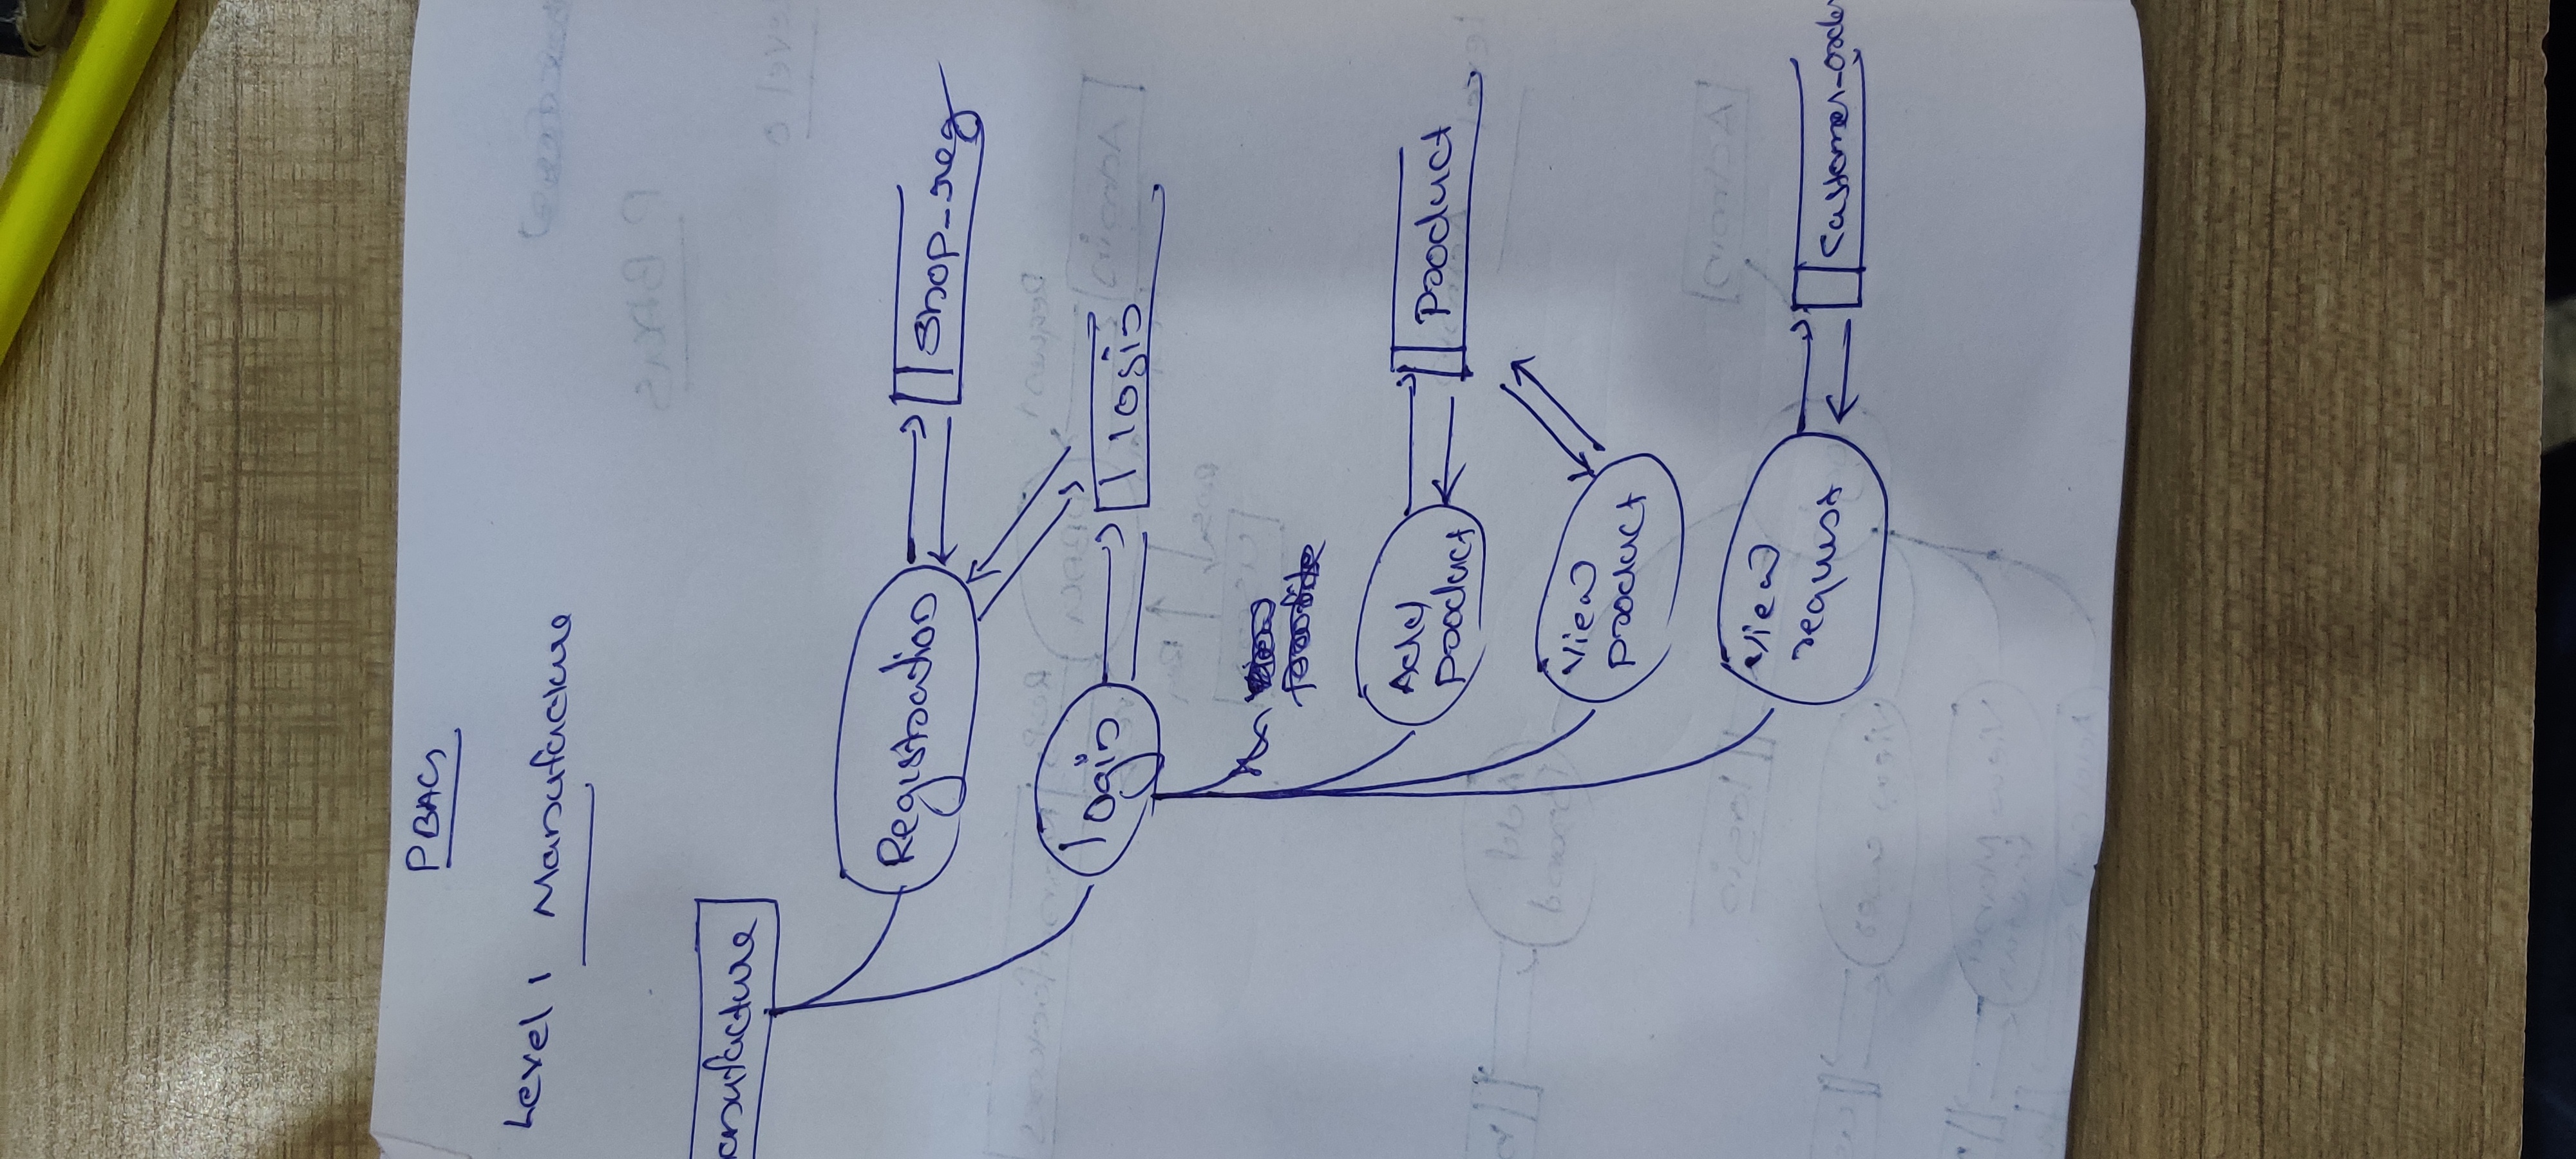 PBACS
Level 1 Manufacture
anufacture
Registration
Shop_reg
login
login
Add
product
product
View
product
View
request
Customer_order